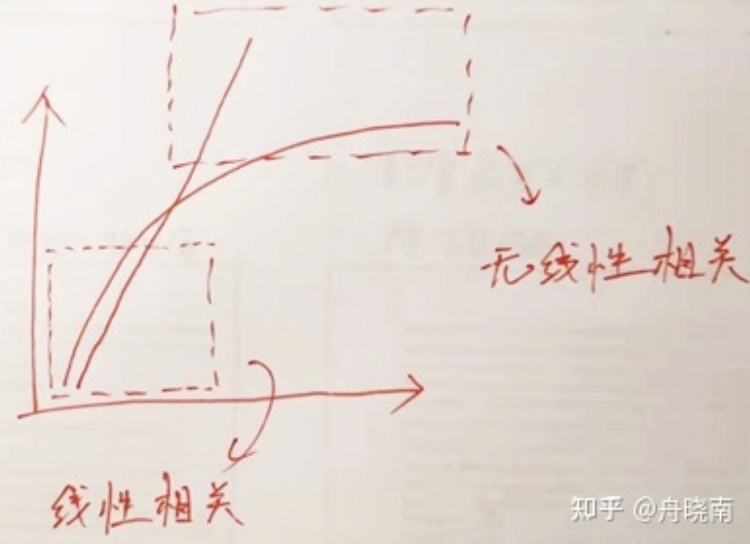 无线性相关
线性相关
知乎 @舟晓南